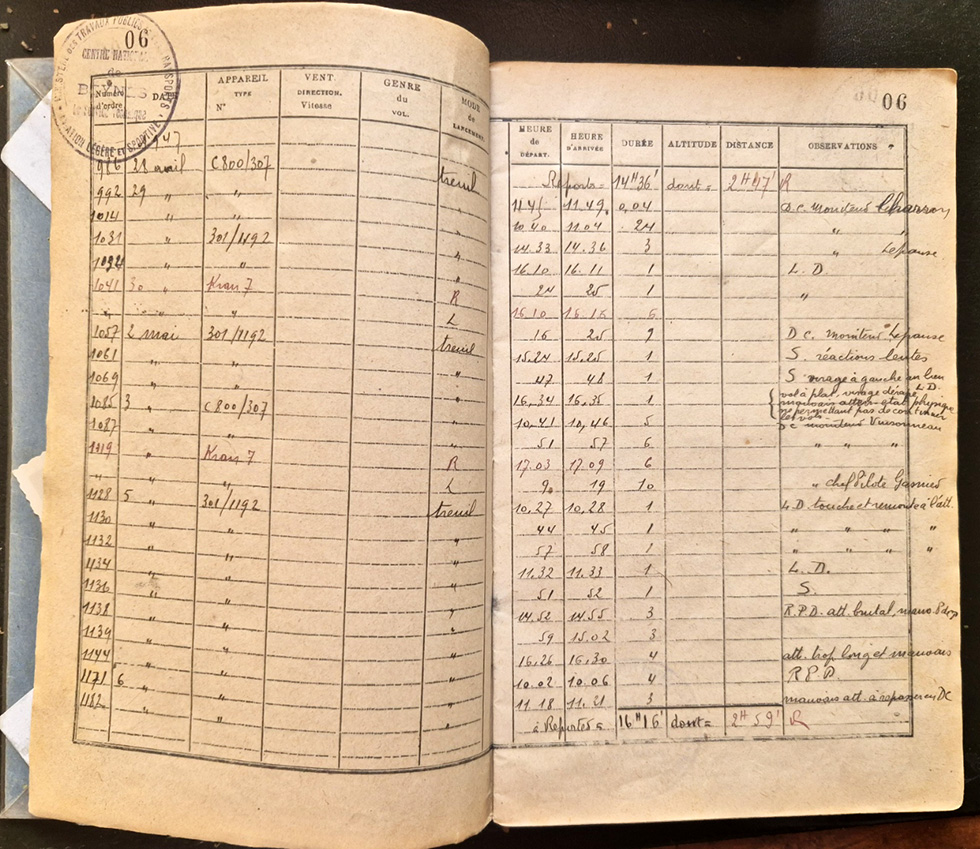 MINISTÈRE DES TRAVAUX PUBLICS
TRANSPORTS
CENTRE NATIONAL
de
BEYNES
AVIATION LÉGÈRE ET SPORTIVE
06
Numéro d'ordre DATE APPAREIL TYPE N° VENT. DIRECTION. Vitesse GENRE du VOL. MODE de LANCEMENT.
47
986 28 avril C800/307 treuil
992 29 " "
1014 " "
1031 " 301/1192 "
1032 " " "
1041 30 " Kran 7 R
" " " L
1057 2 mai 301/1192 treuil
1061 " " "
1069 " " "
1085 3 " C800/307 "
1087 " " "
1119 " Kran 7 R
" " " L
1128 5 " 301/1192 treuil
1130 " " "
1132 " " "
1134 " " "
1136 " " "
1138 " " "
1139 " " "
1144 " " "
1171 6 " "
1182 " " "
06
HEURE de DÉPART. HEURE D'ARRIVÉE DURÉE ALTITUDE DISTANCE OBSERVATIONS
Reports = 14H36' dont = 2H47' R
11.45 11.49 0,04 D.C. moniteur Charron
10.40 11.04 24 " "
14.33 14.36 3 " Lepause
16.10 16.11 1 L.D.
24 25 1 "
16.10 16.15 5
16 25 9 D.C. moniteur Lepause
15.24 15.25 1 S. réactions lentes
47 48 1 S virage à gauche au lieu L.D.
16,34 16,35 1 vol à plat, virage dérapé, mauvais atter. état physique ne permettant pas de continuer les vols
10,41 10,46 5 DC moniteur Vuissonneau
51 57 6 " " "
17.03 17.09 6
9 19 10 " chef Pilote Gasnier
10,27 10,28 1 L.D. touche et remonte à l'att.
44 45 1 " " " "
57 58 1 " " " "
11.32 11.33 1 L.D.
51 52 1 S.
14,52 14.55 3 R.P.D. att. brutal, mauv.
59 15.02 3
16,26 16,30 4 att. trop long et mauvais
10.02 10.06 4 R.P.D.
11.18 11.21 3 mauvais att. à repasser en DC
à Reporter = 16H16' dont = 2H59' R